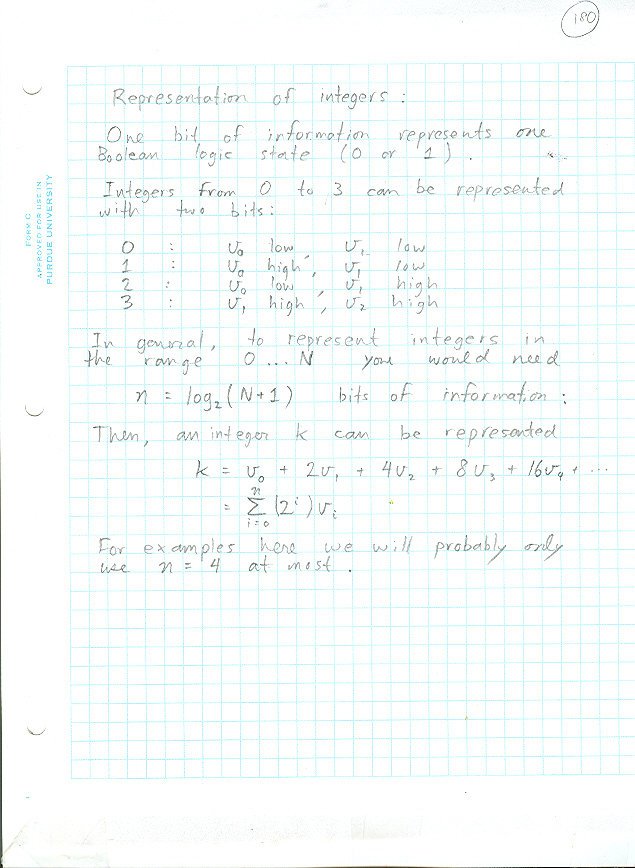 180
Representation of integers :
One bit of information represents one
Boolean logic state (0 or 1) .
Integers from 0 to 3 can be represented
with two bits :
0 : v₀ low, v₁ low
1 : v₀ high, v₁ low
2 : v₀ low, v₁ high
3 : v₁ high, v₂ high
In general, to represent integers in
the range 0 ... N you would need
n = log₂(N+1) bits of information :
Then, an integer k can be represented
k = v₀ + 2v₁ + 4v₂ + 8v₃ + 16v₄ + ...
= n∑i=0 (2ⁱ) vᵢ
For examples here we will probably only
use n = 4 at most .
FORM C
APPROVED FOR USE IN
PURDUE UNIVERSITY